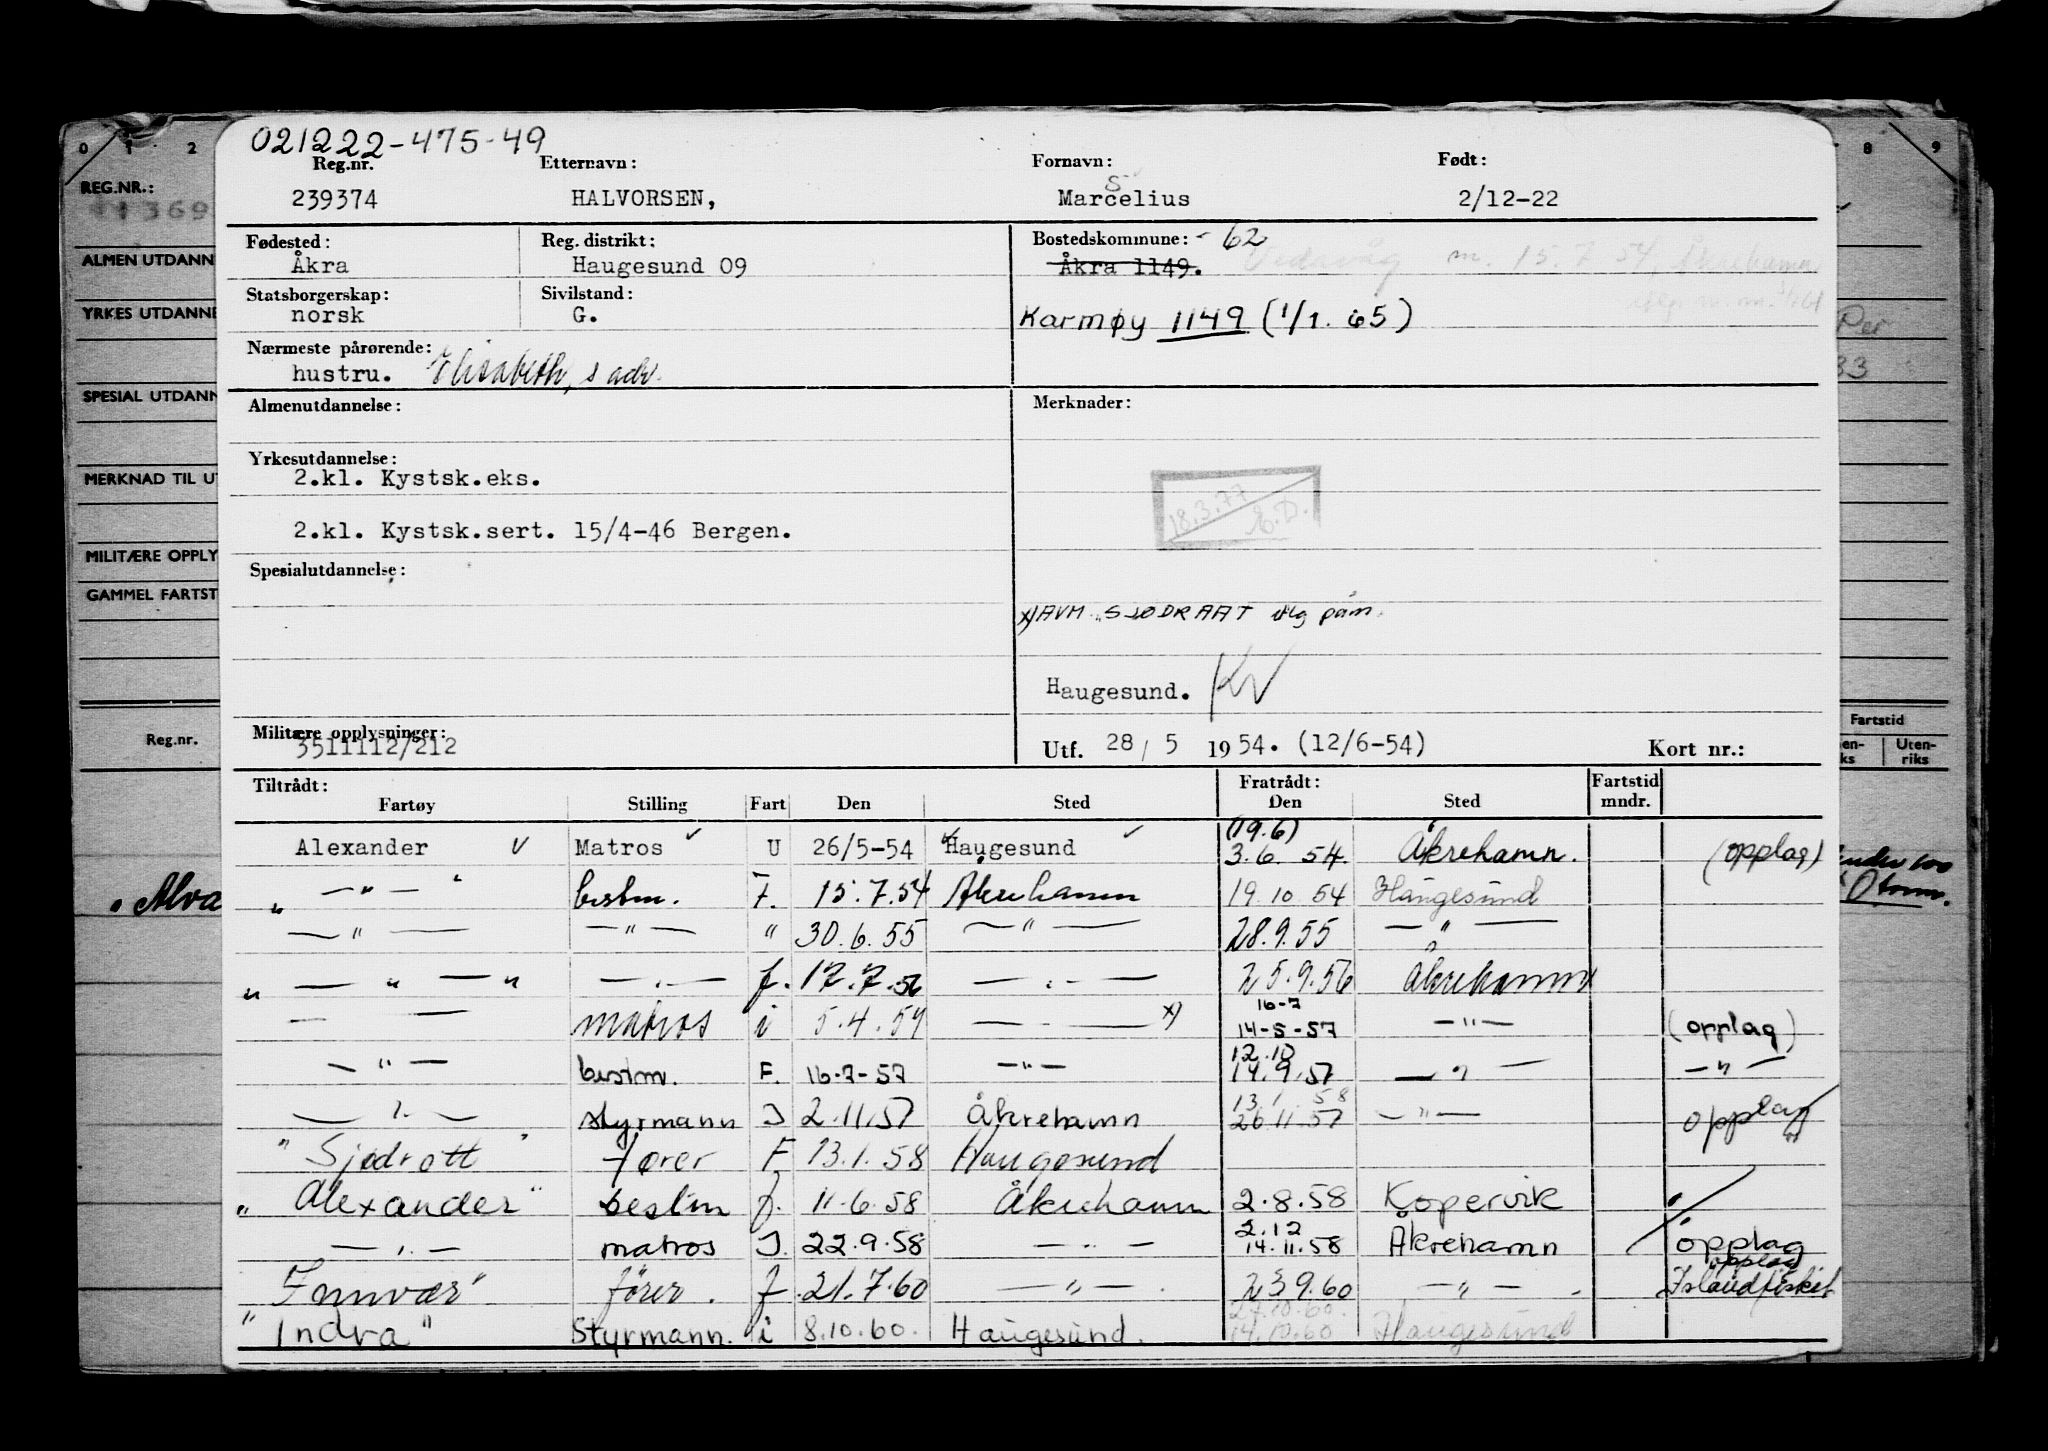 021222-475-49
Reg.nr. Etternavn: Fornavn: Født:
s
239374 HALVORSEN, Marcelius 2/12-22
Fødested: Reg. distrikt: Bostedskommune: - 62
Åkra Haugesund 09 Åkra 1149. Vedavåg m. 15.7 54, Åkrehamn
Statsborgerskap: Sivilstand:
norsk G. Karmøy 1149 (1/1. 65)
Nærmeste pårørende:
hustru. Elisabeth, s adr.
Almenutdannelse: Merknader:
Yrkesutdannelse:
2.kl. Kystsk.eks.
18.3.77
2.kl. Kystsk.sert. 15/4-46 Bergen.
Spesialutdannelse:
x) AVM. "SJØDRAAT
Haugesund. KV
Militære opplysninger:
3511112/212 Utf. 28 / 5 1954. (12/6-54) Kort nr.:
Tiltrådt: Fratrådt: Fartstid
Fartøy Stilling Fart Den Sted Den Sted mndr.
(19.6)
Alexander v Matros U 26/5-54 Haugesund 3.6. 54. Åkrehamn. (opplag)
" — " — " bestm. F. 15.7.54 Åkrehamn 19.10.54 Haugesund
— " — — " — " 30.6.55 — " — 28.9.55 — " —
" — " — " — . — f. 17.7.56 — . — 25.9.56 Åkrehamn
16-7
— — matros i 5.4.57 — . — x) 14-5-57 — " — (opplag)
12.10
— " — bestm. F. 16-7-57 — " — 14.9.57 — " — — " —
13.1.58
— " — styrmann I 2.11.57 Åkrehamn 26.11.57 — " — opplag
"Sjødrott" fører F 13.1.58 Haugesund
"Alexander" bestm f. 11.6.58 Åkrehamn 2.8.58 Kopervik
2.12
— " — matros I. 22.9.58 — " — 14.11.58 Åkrehamn opplag
opplag
"Innvær" fører. f 21.7.60 — " — 23 9.60 — " — Islandfisket
27.10.60.
"Indra" Styrmann. i 8.10.60. Haugesund. 14.10.60 Haugesund
0 1 2 8 9
REG.NR.:
ALMEN UTDANN
YRKES UTDANNE
Per
33
SPESIAL UTDANN
MERKNAD TIL UT
MILITÆRE OPPLY
GAMMEL FARTST
Reg.nr. Fartstid
en-ks Uten-riks
Alva